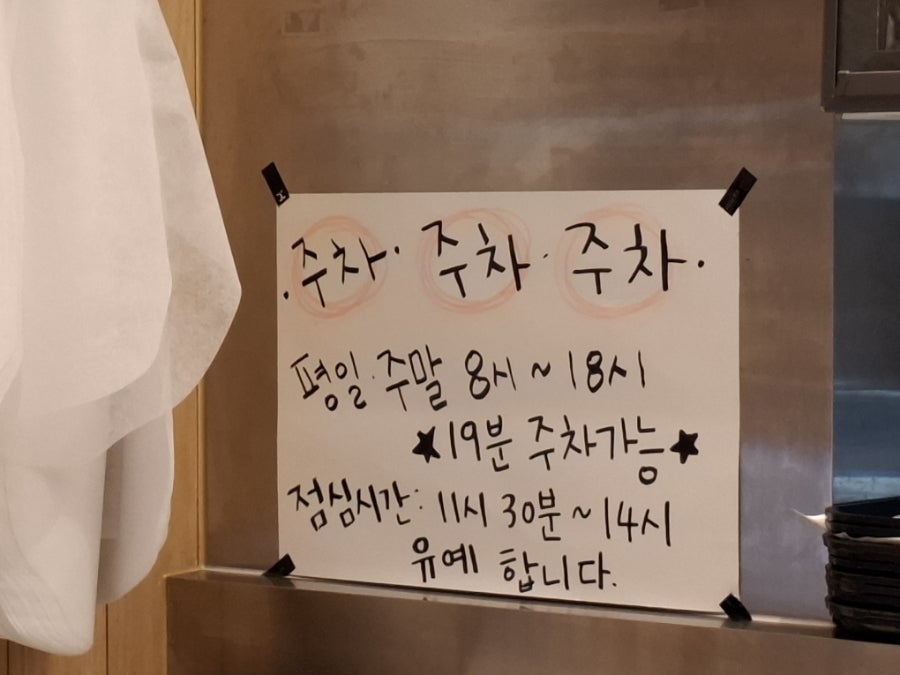 ·주차· 주차· 주차·
평일·주말 8시~18시
★19분 주차가능★
점심시간: 11시 30분~14시
유예 합니다.